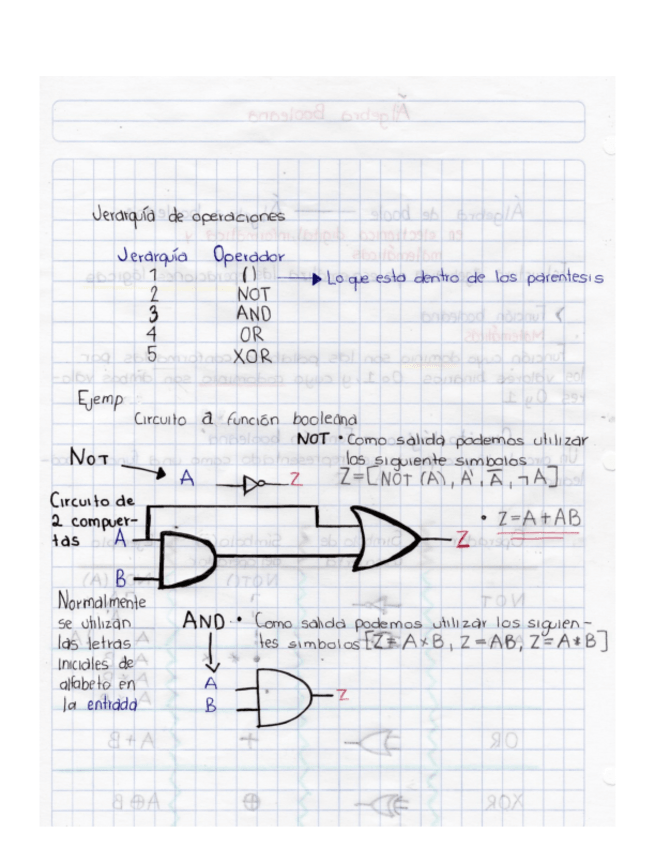 Jerarquía de operaciones
Jerarquía Operador
1 () Lo que esta dentro de los parentesis
2 NOT
3 AND
4 OR
5 XOR
Ejemp
Circuito a función booleana
NOT • Como salida podemos utilizar
los siguiente simbolos
Z=[NOT (A), A', A̅, ¬A]
NOT
A Z
Circuito de
2 compuer-
tas
A
B
Z
• Z=A+AB
Normalmente
se utilizan
las letras
iniciales de
alfabeto en
la entrada
AND • Como salida podemos utilizar los siguien-
tes simbolos [Z=A×B, Z=AB, Z=A*B]
A
B
Z